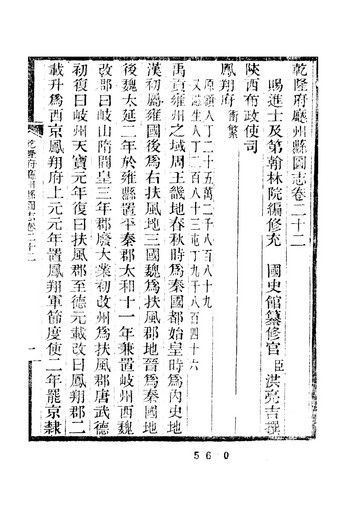 乾隆府廳州縣圖志卷二十二
賜進士及第翰林院編修充　國史館纂修官　臣　洪亮吉撰
陝西布政使司
鳳翔府 衝繁
原額人丁二十五萬二千八百八十九
又滋生人丁二百八十三屯丁九千八百四十六
禹貢雍州之域周王畿地春秋時爲秦國都始皇時爲內史地
漢初屬雍國後爲右扶風地三國魏爲扶風郡地晉爲秦國地
後魏太延二年於雍縣置平秦郡太和十一年兼置岐州西魏
改郡曰岐山隋開皇三年郡廢大業初改州爲扶風郡唐武德
初復曰岐州天寶元年復曰扶風郡至德元載改曰鳳翔郡二
載升爲西京鳳翔府上元元年置鳳翔軍節度使二年罷京隸
乾隆府廳州縣圖志卷二十二
一
560